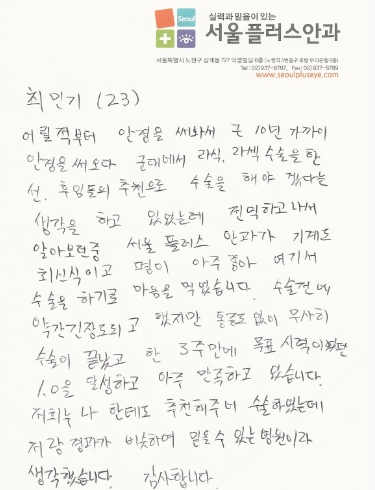 Seoul
실력과 믿음이 있는
서울플러스안과
서울특별시 노원구 상계동
Tel : 02) 937-6787, Fax: 02) 937-6789
www.seoulpluseye.com
최민기 (23)
어릴적부터 안경을 써와서 근 10년 가까이
안경을 써오다 군대에서 라식, 라섹 수술을 한
선. 후임들의 추천으로 수술을 해야 겠다는
생각을 하고 있었는데 전역하고 나서
알아보던중 서울 플러스 안과가 기계도
최신식이고 평이 아주 좋아 여기서
수술을 하기로 마음을 먹었습니다. 수술전에
약간긴장도되고 했지만 통증도 없이 무사히
수술이 끝났고 한 3주만에 목표 시력이였던
1.0을 달성하고 아주 만족하고 있습니다.
저희누나 한테도 추천해주어 수술하였는데
저랑 경과가 비슷하여 믿을수 있는 병원이라
생각했습니다. 감사합니다.